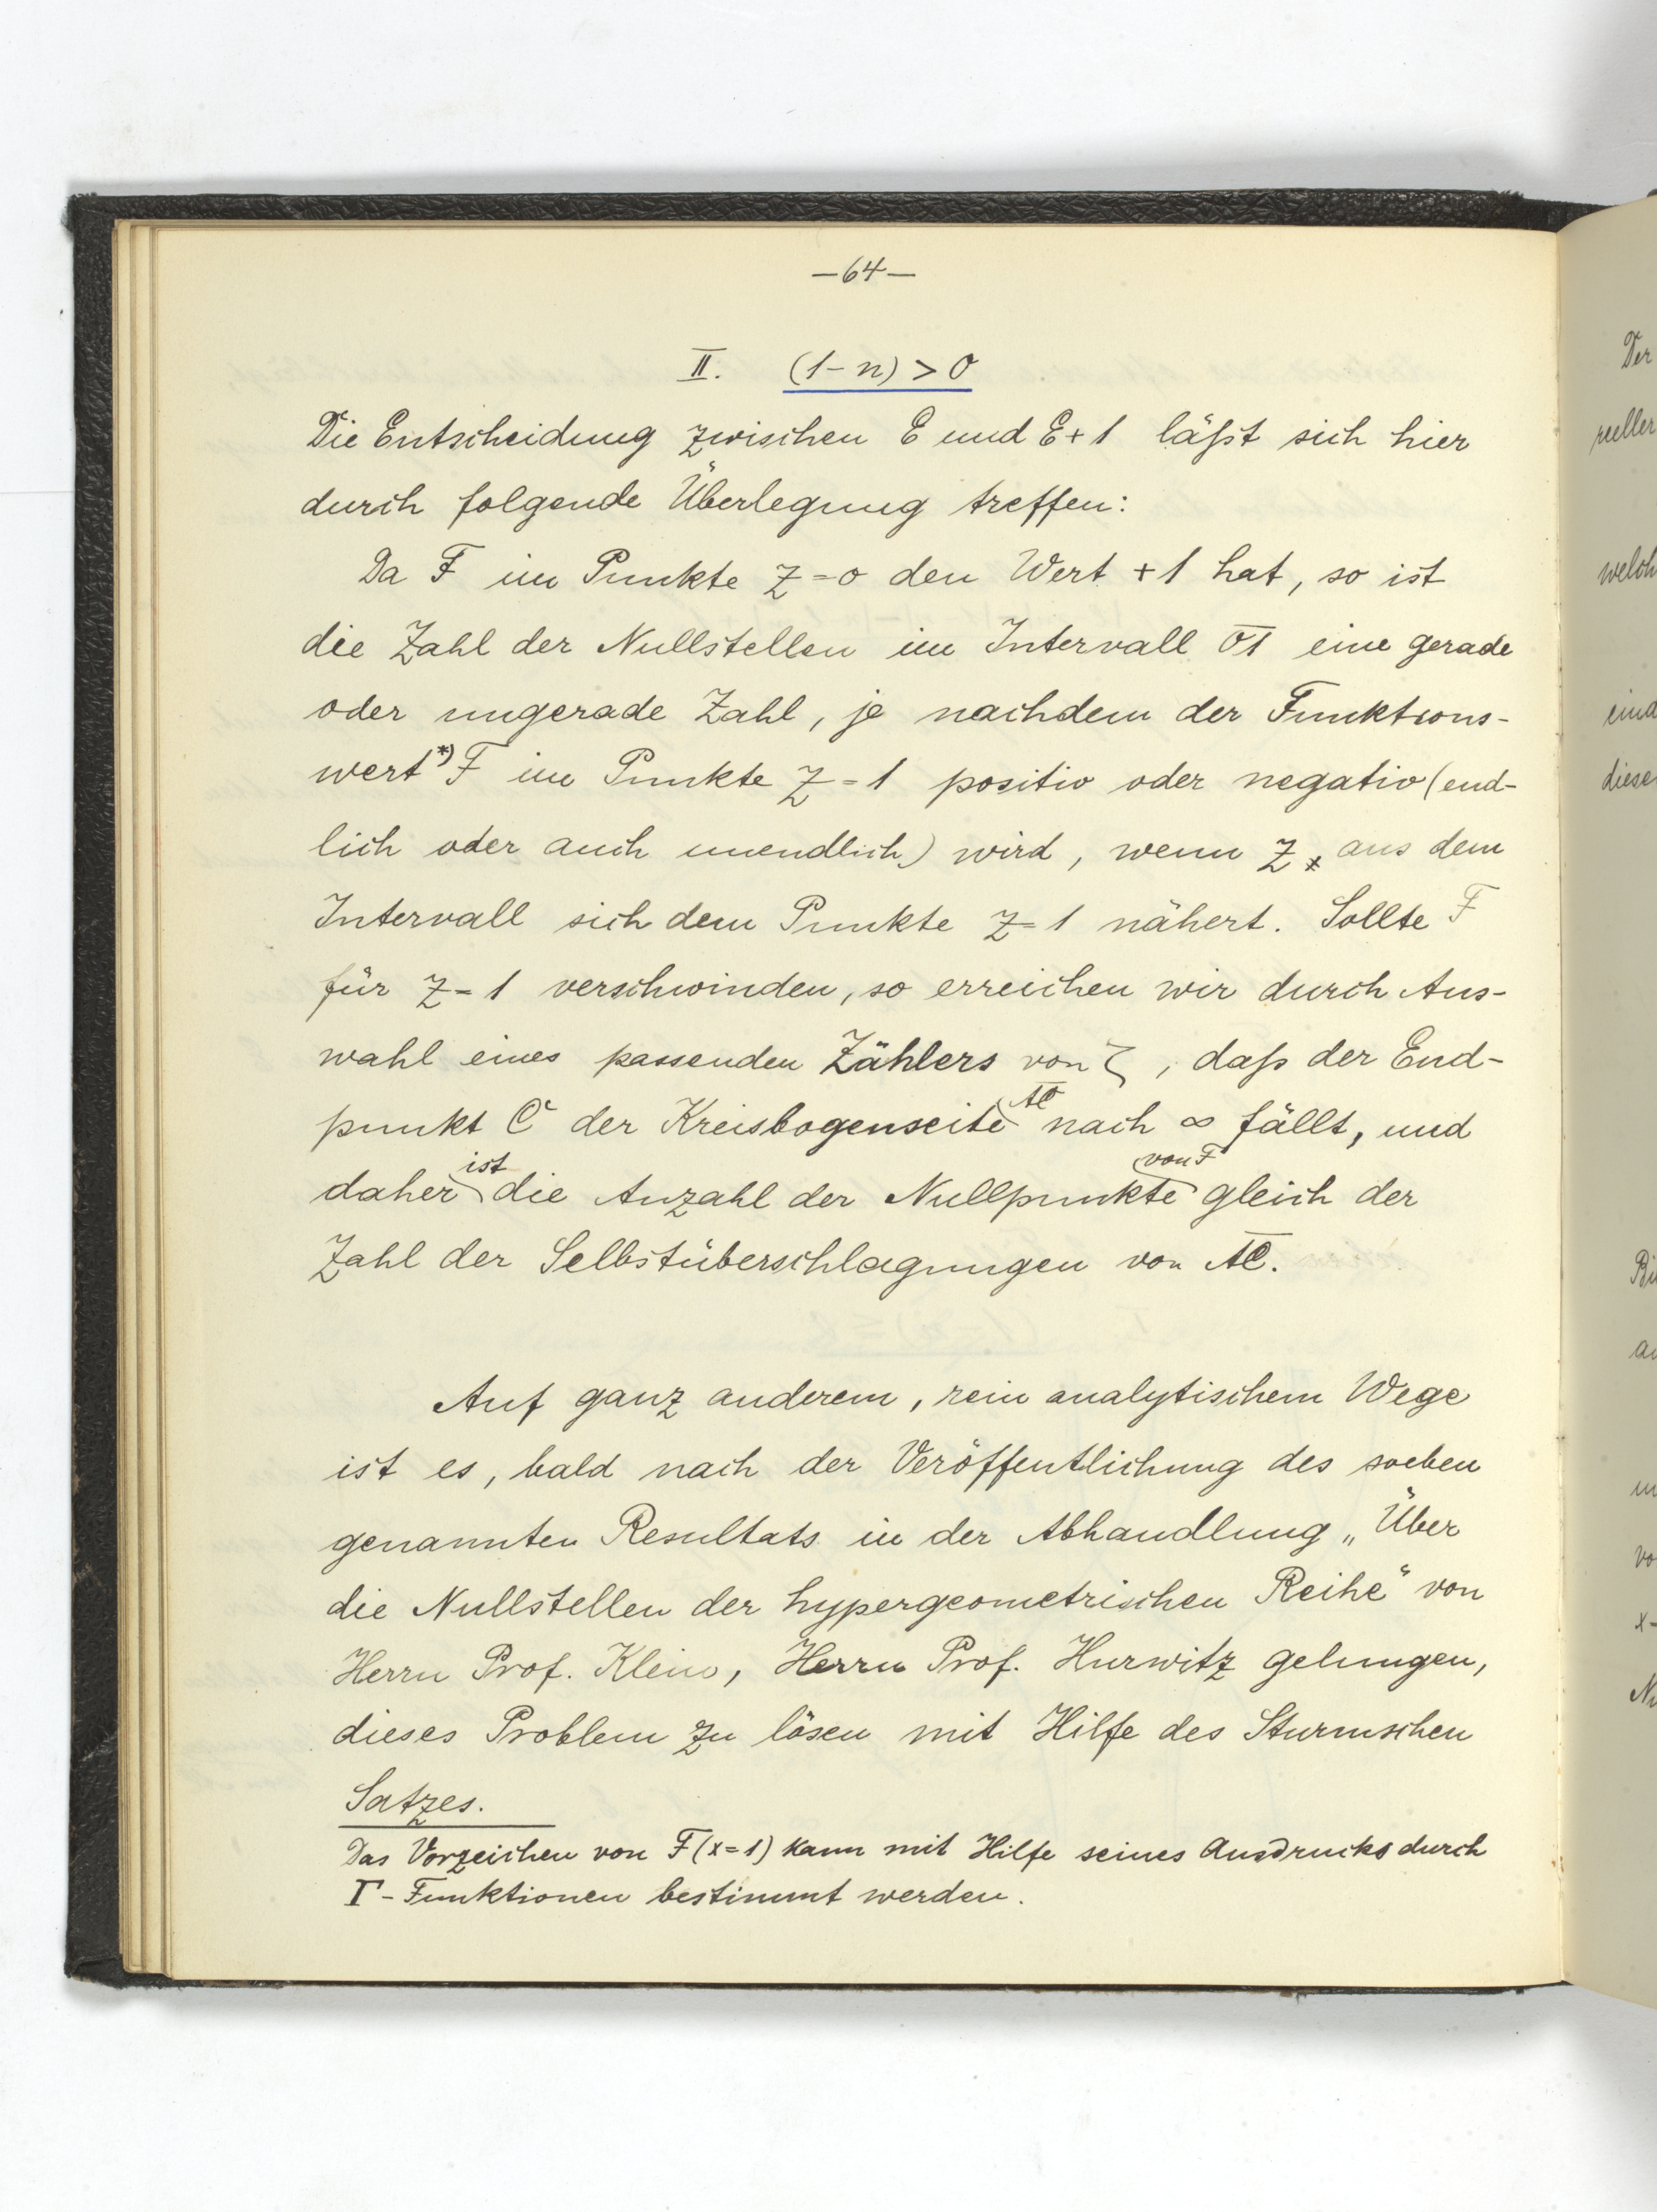 —64—
II. (1-n) > 0
Die Entscheidung zwischen E und E+1 läßt sich hier
durch folgende Überlegung treffen:
Da F im Punkte z=0 den Wert +1 hat, so ist
die Zahl der Nullstellen im Intervall 01 eine gerade
oder ungerade Zahl, je nachdem der Funktions-
wert*) F im Punkte z=1 positiv oder negativ (end-
lich oder auch unendlich) wird, wenn z, aus dem
Intervall sich dem Punkte z=1 nähert. Sollte F
für z=1 verschwinden, so erreichen wir durch Aus-
wahl eines passenden Zählers von ζ, daß der End-
punkt C der Kreisbogenseite AC nach ∞ fällt, und
daher ist die Anzahl der Nullpunkte von F gleich der
Zahl der Selbstüberschlagungen von AC.
Auf ganz anderem, rein analytischem Wege
ist es, bald nach der Veröffentlichung des soeben
genannten Resultats in der Abhandlung „Über
die Nullstellen der hypergeometrischen Reihe“ von
Herrn Prof. Klein, Herrn Prof. Hurwitz gelungen,
dieses Problem zu lösen mit Hilfe des Sturmschen
Satzes.
Das Vorzeichen von F(x=1) kann mit Hilfe seines Ausdrucks durch
Γ-Funktionen bestimmt werden.
Der
reeller
welch
eind
diese